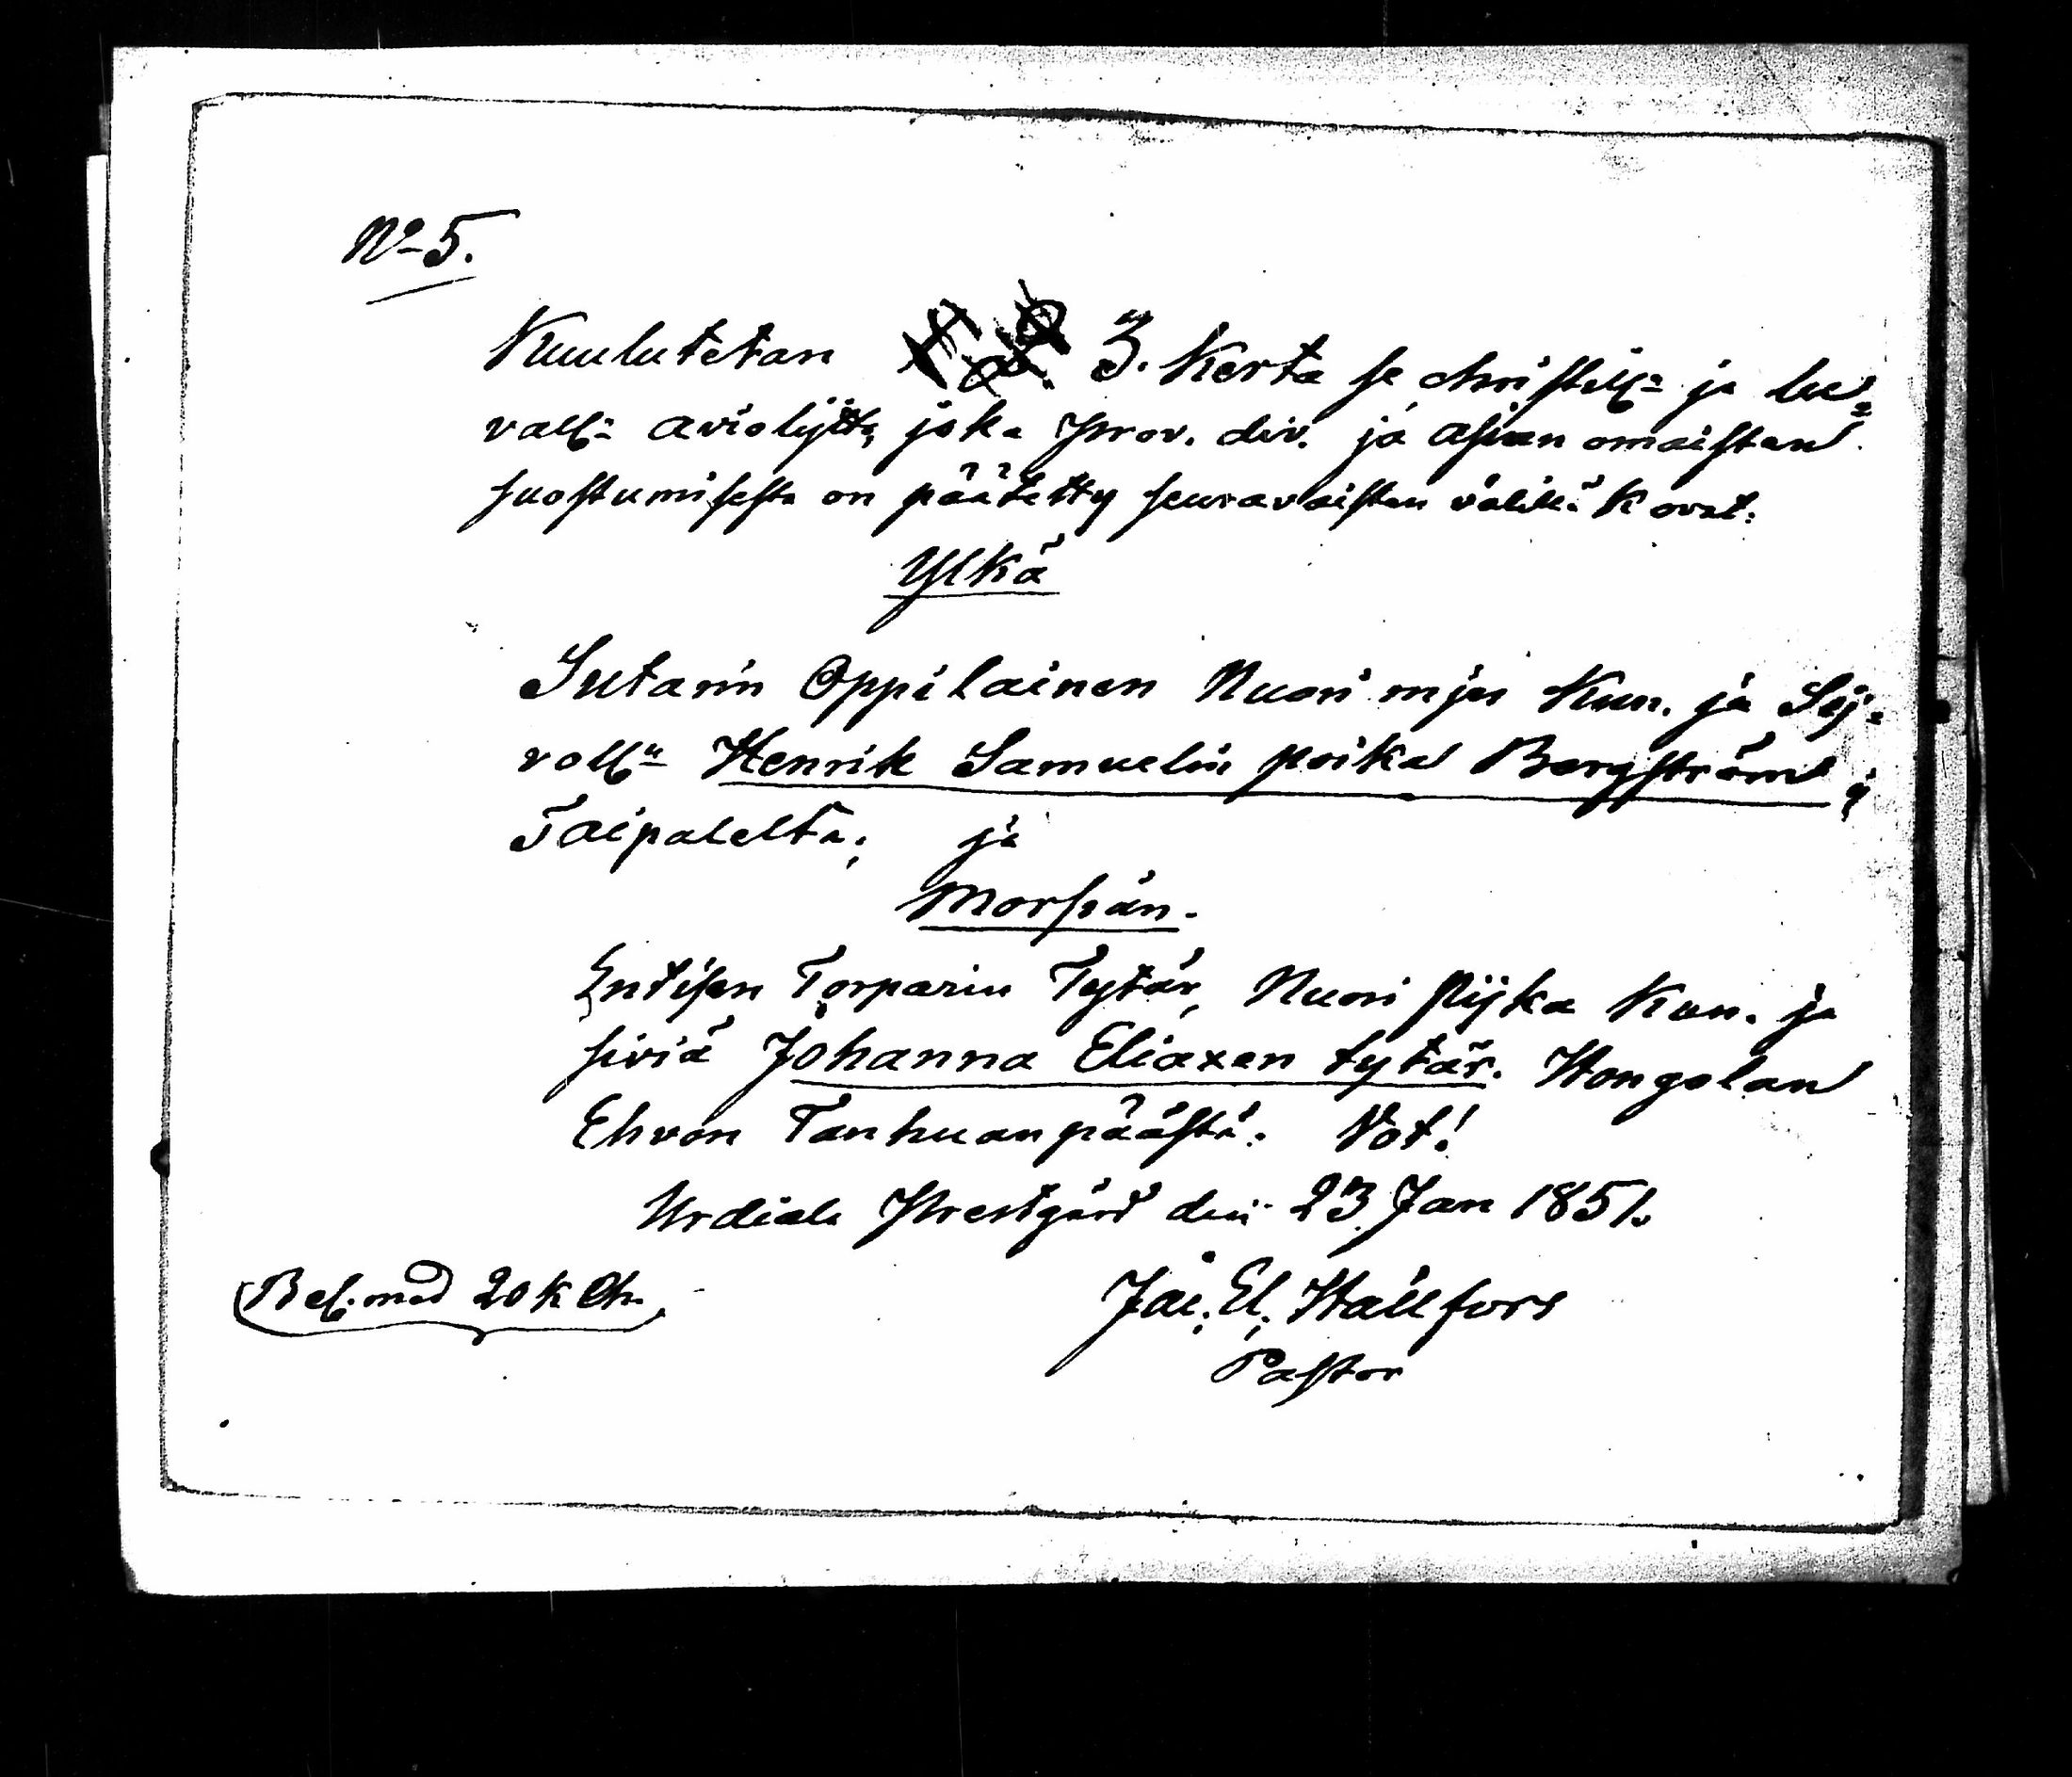 No 5.
Kuulutetan 3. Kerta se christill: ja lu=
vall: aviolijtto, joka prov. div. ja asian omaisten
suostumisesta on päätetty seuravaisten välillä K ovat:
Ylkä
Sutarin Oppilainen Nuori mjes Kun. ja Sij=
voll: Henrik Samuelin poika Bergström
Taipalelta; ja
Morsian.
Entisen Torparin Tytär, Nuori Pijka Kun. ja
siviä Johanna Eliaxen tytär. Hongolan
Ehron Tanhuanpäästä. Vot!
Urdiala Prestgård den 23 Jan 1851.
Bel. med 20 k Ch.
Jac. El. Hällfors
Pastor